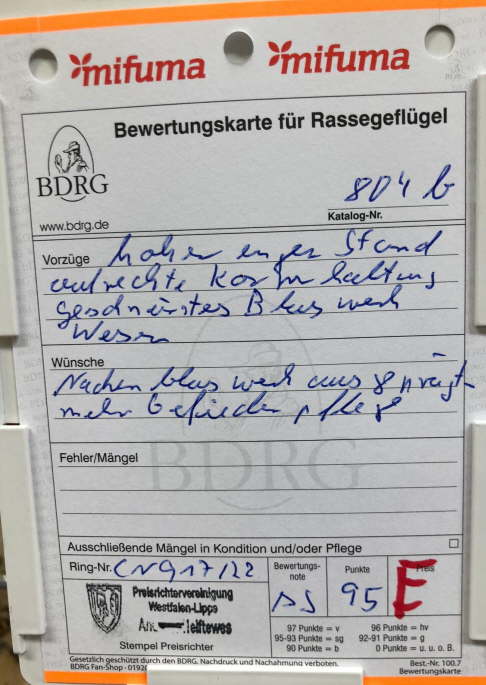 mifuma mifuma
Bewertungskarte für Rassegeflügel
BDRG
www.bdrg.de
804 b
Katalog-Nr.
Vorzüge hoher enger Stand
aufrechte Körperhaltung
geschnürtes Blaswerk
Wesen
Wünsche
Nacken blaswerk ausgeprägt
mehr Gefieder pflege
Fehler/Mängel
BDRG
Ausschließende Mängel in Kondition und/oder Pflege
Ring-Nr. CN917/22
Bewertungs-
note
Punkte
Preis
sg 95 E
Preisrichtervereinigung
Westfalen-Lippe
Stempel Preisrichter
97 Punkte = v 96 Punkte = hv
95-93 Punkte = sg 92-91 Punkte = g
90 Punkte = b 0 Punkte = u. u. o. B.
Gesetzlich geschützt durch den BDRG. Nachdruck und Nachahmung verboten.
BDRG Fan-Shop - 0192
Best.-Nr. 100.7
Bewertungskarte